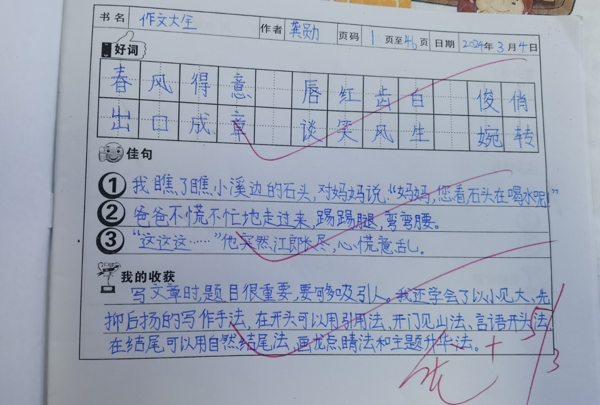 书名 作文大全 作者 龚勋 页码 1 页至46页 日期 2024年3月4日
好词
春风得意 唇红齿白 俊俏
出口成章 谈笑风生 婉转
佳句
① 我瞧了瞧小溪边的石头,对妈妈说:“妈妈,您看石头在喝水呢!”
② 爸爸不慌不忙地走过来,踢踢腿,弯弯腰。
③ “这这这……”他突然江郎才尽,心慌意乱。
我的收获
写文章时,题目很重要,要够吸引人。我还学会了以小见大、先
抑后扬的写作手法,在开头可以用引用法、开门见山法、言语开头法,
在结尾可以用自然结尾法、画龙点睛法和主题升华法。
优+